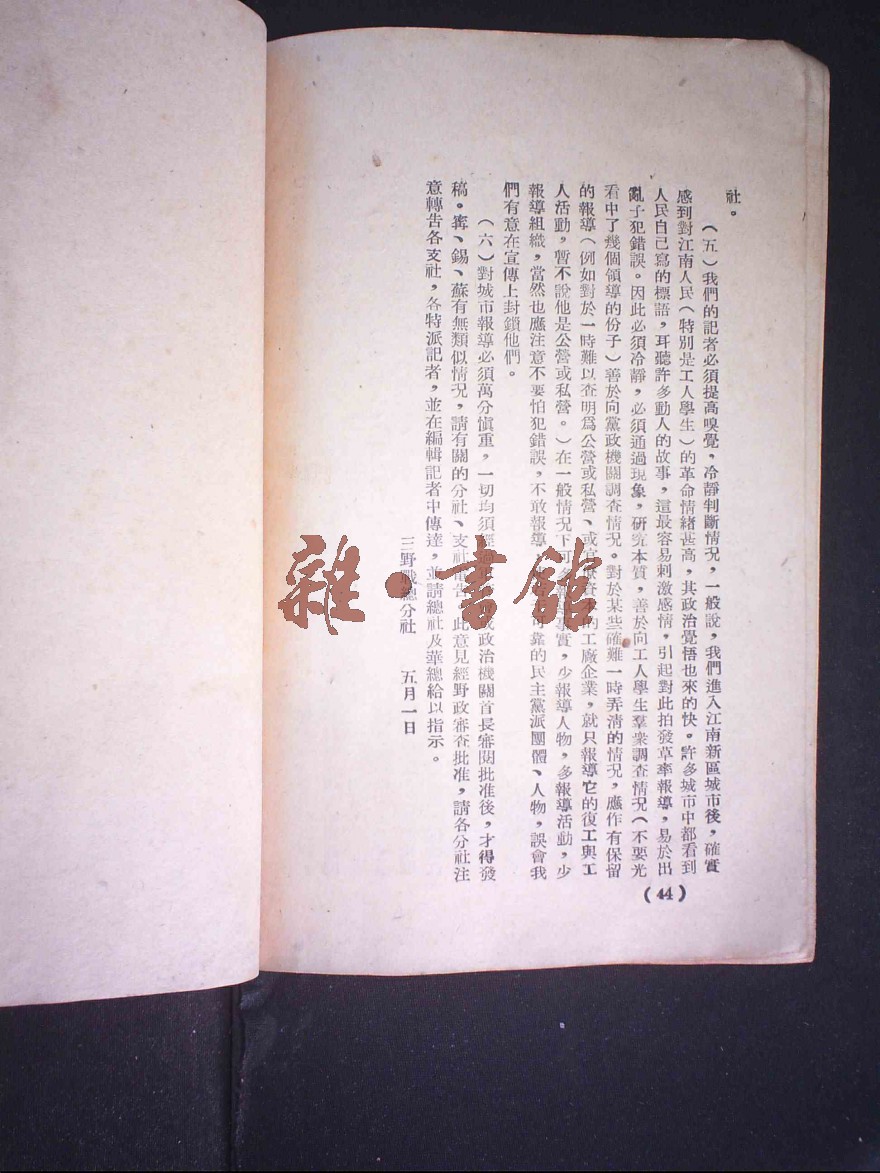 社。
（五）我們的記者必須提高嗅覺，冷靜判斷情况，一般說，我們進入江南新區城市後，確實
感到對江南人民（特別是工人學生）的革命情緒甚高，其政治覺悟也來的快。許多城市中都看到
人民自己寫的標語，耳聽許多動人的故事，這最容易刺激感情，引起對此拍發草率報導，易於出
亂子犯錯誤。因此必須冷靜，必須通過現象，研究本質，善於向工人學生羣衆調查情况（不要光
看中了幾個領導的份子）善於向黨政機關調查情况。對於某些確難一時弄清的情况，應作有保留
的報導（例如對於一時難以查明爲公營或私營、或官僚資本的工廠企業，就只報導它的復工與工
人活動，暫不說他是公營或私營。）在一般情况下可 事實，少報導人物，多報導活動，少
報導組織，當然也應注意不要怕犯錯誤，不敢報導 可靠的民主黨派團體、人物，誤會我
們有意在宣傳上封鎖他們。
（六）對城市報導必須萬分愼重，一切均須經 政治機關首長審閱批准後，才得發
稿。寗、錫、蘇有無類似情况，請有關的分社、支社電告。此意見經野政審查批准，請各分社注
意轉告各支社，各特派記者，並在編輯記者中傳達，並請總社及華總給以指示。
三野戰總分社 五月一日
（44）
雜·書館